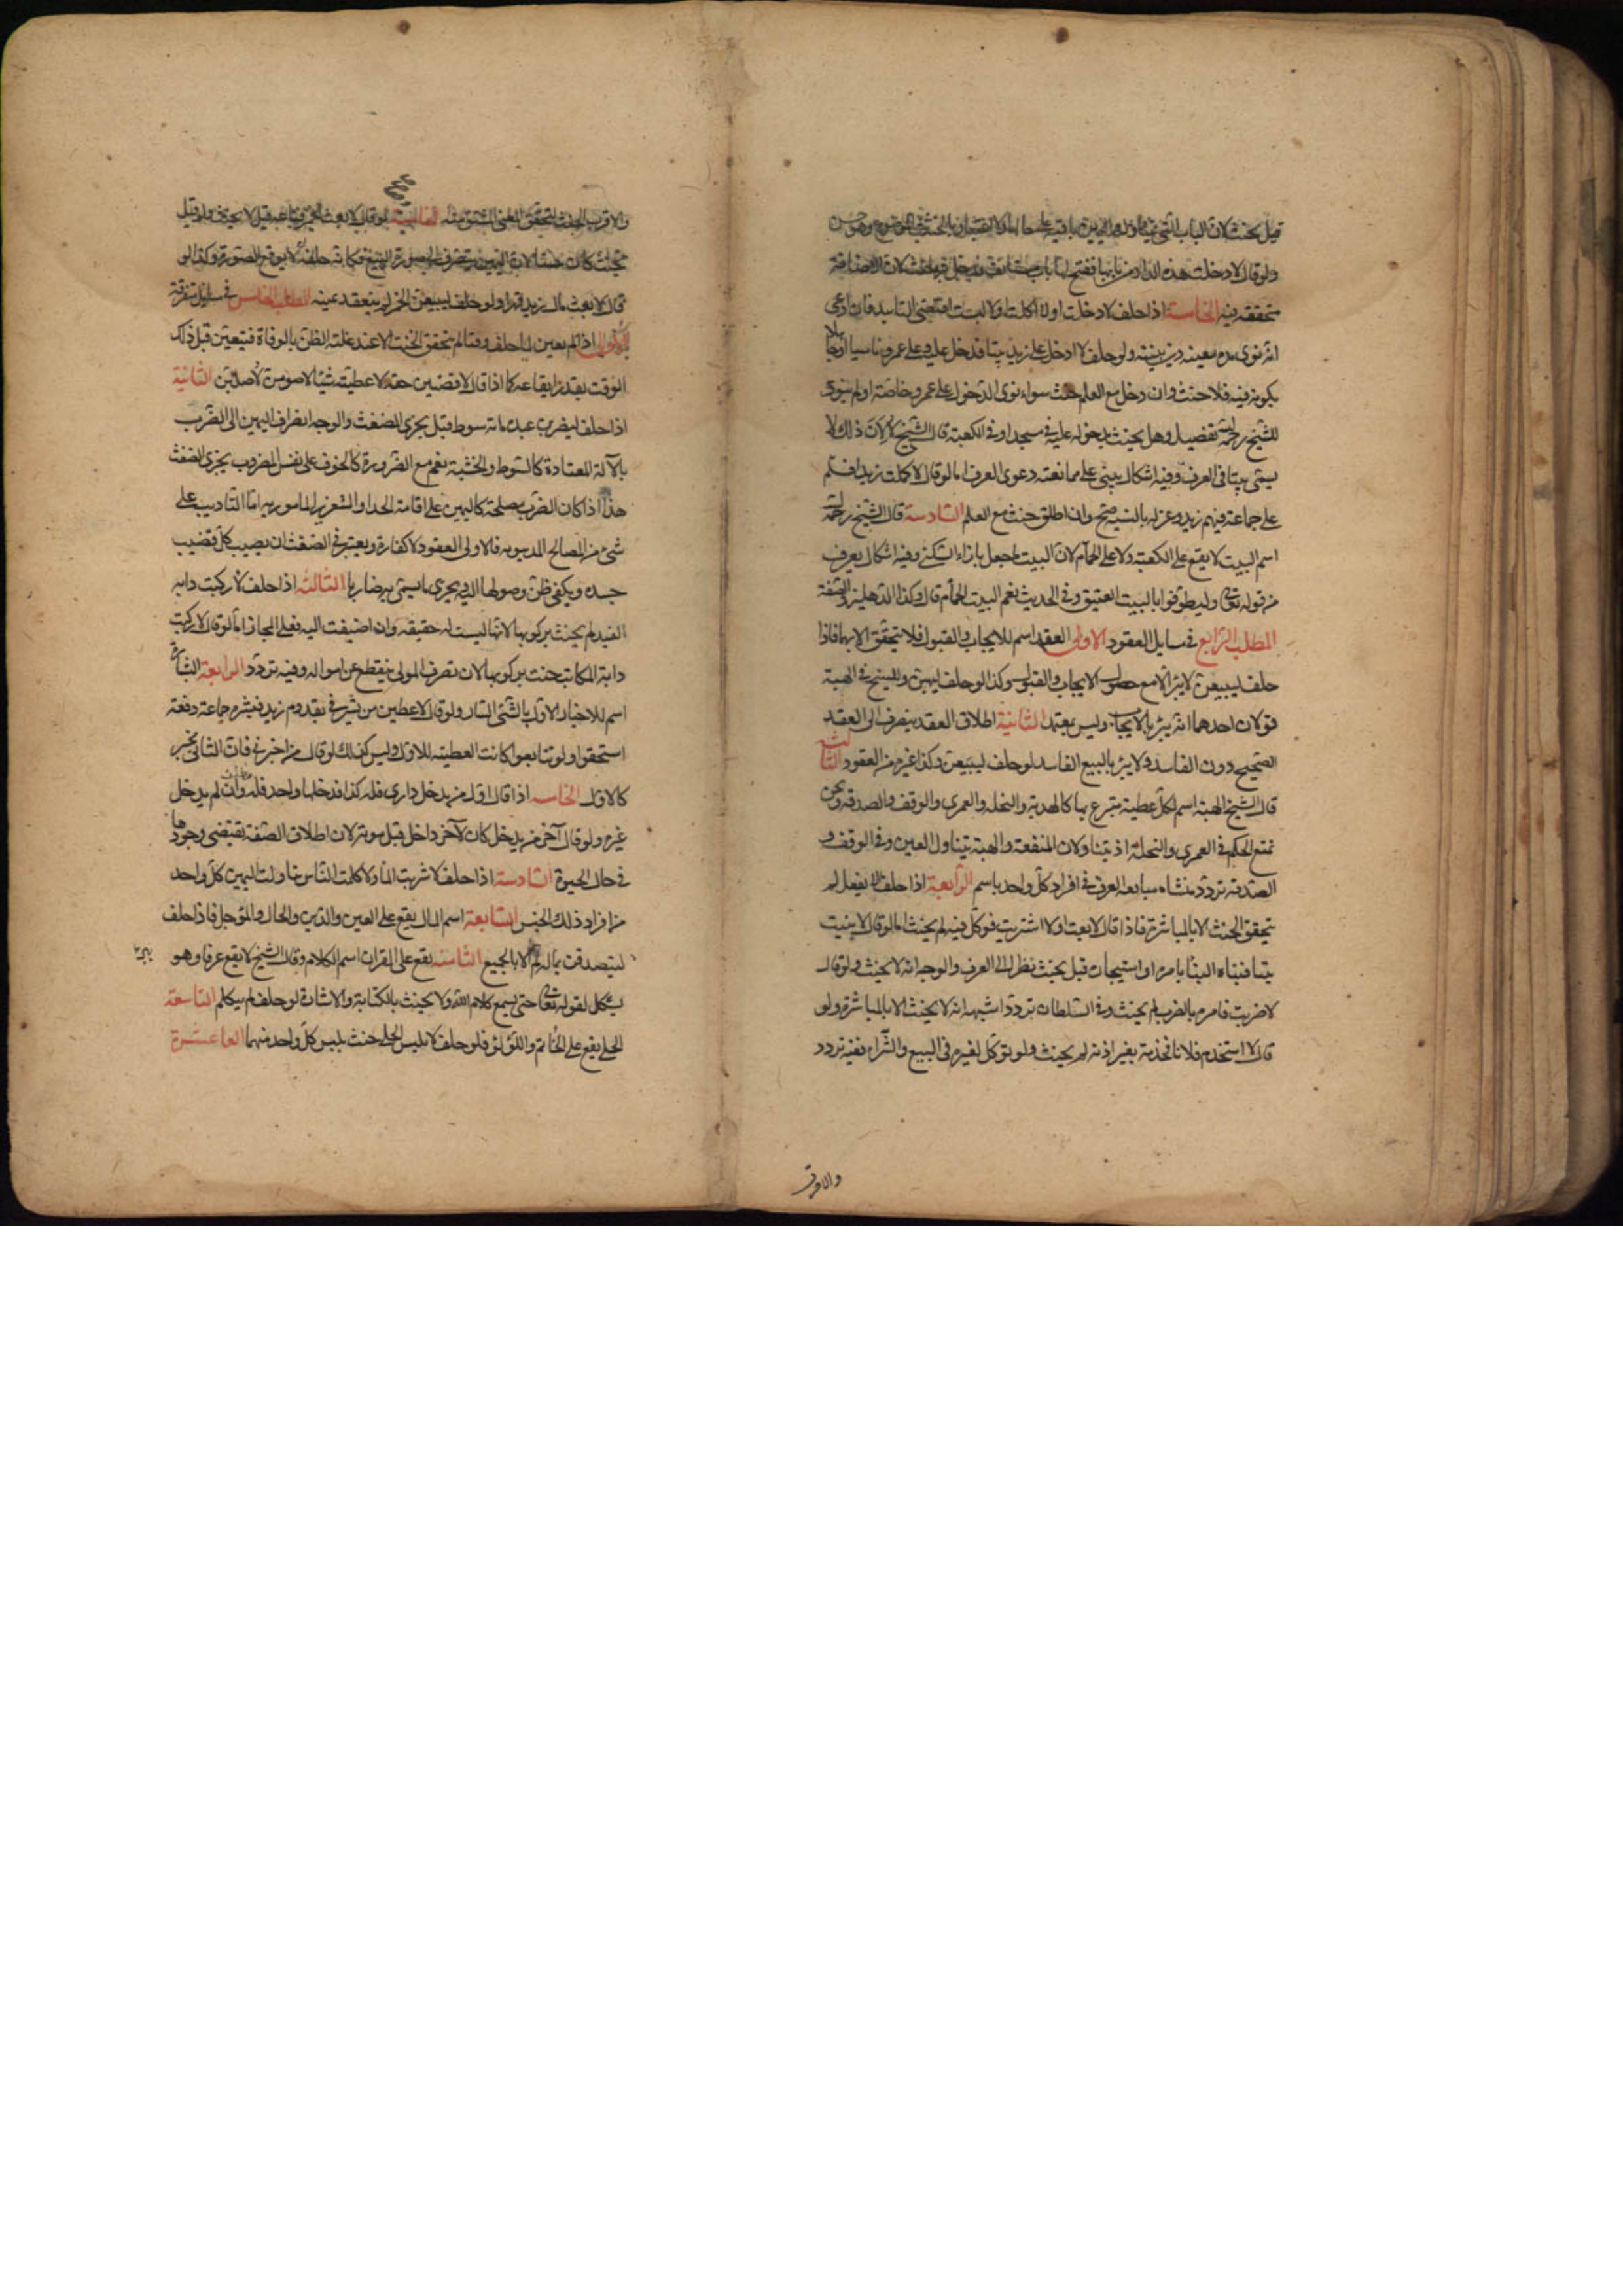 قيل يحنث لان الباب الذي تناولته اليمين باق على حاله ولا اعتبار بالخشب الموضوع وهو حسن
ولو قال لا دخلت هذه الدار من بابها ففتح لها باب مستانف فدخل به حنث لان الاضافة
متحققة فيه الخامسة اذا حلف لا دخلت او لا اكلت او لا لبست اقتضى التابيد فان ادعى
انه نوى مدة معينة دين بنيته ولو حلف لا ادخل على زيد بيتا فدخل عليه وعلى عمرو ناسيا او جاهلا
بكونه فيه فلا حنث وان دخل مع العلم حنث سواء نوى الدخول على عمرو خاصة او لم ينوى
للشيخ رحمه الله تفصيل وهل يحنث بدخوله عليه في مسجد او في الكعبة قال الشيخ لا لان ذلك لا
يسمى بيتا في العرف وفيه اشكال يبنى على ممانعته دعوى العرف اما لو قال لا كلمت زيدا فسلم
على جماعة فيهم زيد وعزله بالنية صح وان اطلق حنث مع العلم السادسة قال الشيخ رحمه الله
اسم البيت لا يقع على الكعبة ولا على الحمام لان البيت ما جعل بازاء السكنى وفيه اشكال يعرف
من قوله تعالى وليطوفوا بالبيت العتيق وفي الحديث نعم البيت الحمام قال وكذا الدهليز والصفة
المطلب الرابع في مسايل العقود الاولى العقد اسم للايجاب والقبول فلا يتحقق الا بهما فاذا
حلف ليبيعن لا يبر الا مع حصول الايجاب والقبول وكذا لو حلف ليهبن وللشيخ في الهبة
قولان احدهما انه يبر بالايجاب وليس بمعتمد الثانية اطلاق العقد ينصرف الى العقد
الصحيح دون الفاسد ولا يبر بالبيع الفاسد لو حلف ليبيعن وكذا غيره من العقود الثالثة
قال الشيخ الهبة اسم لكل عطية متبرع بها كالهدية والنحلة والعمرى والوقف والصدقة ونحن
نمنع الحكم في العمرى والنحلة اذ يتناولان المنفعة والهبة يتناول العين وفي الوقف و
الصدقة تردد منشاه متابعه العرف في افراد كل واحد باسم الرابعة اذا حلف لا يفعل لم
يتحقق الحنث الا بالمباشرة فاذا قال لا بعت او لا اشتريت فوكل فيه لم يحنث اما لو قال لا بنيت
بيتا فبناه البناء بامره او استيجاره قيل يحنث نظرا الى العرف والوجه انه لا يحنث ولو قال
لا ضربت فامر بالضرب لم يحنث وفي السلطان تردد اشبهه انه لا يحنث الا بالمباشرة ولو
قال لا استخدم فلانا فخدمه بغير اذنه لم يحنث ولو توكل لغيره في البيع والشراء ففيه تردد
والاقرب
والاقرب الحنث لتحقق المعنى المشتق منه الخامسة لو قال لا بعت الخمر فباعه قيل لا يحنث ولو قيل
يحنث كان حسنا لان اليمين ينصرف الى صورة البيع فكانه حلف لا يوقع الصورة وكذا لو
قال لا بعت مال زيد قهرا ولو حلف ليبيعن الخمر لم ينعقد يمينه المطلب الخامس في مسايل متفرقة
الاولى اذا لم يعين لما حلف وقتا لم يتحقق الحنث الا عند غلبة الظن بالوفاة فيتعين قبل ذلك
الوقت بقدر ايقاعه كما اذا قال لاقضين حقه لاعطيته شيئا لاصومن لاصلين الثانية
اذا حلف ليضربن عبده مائة سوط قيل يجزي الضغث والوجه انصراف اليمين الى الضرب
بالآلة المعتادة كالسوط والخشبة نعم مع الضرورة كالخوف على نفس المضروب يجزي الضغث
هذا اذا كان الضرب مصلحة كاليمين على اقامة الحد او التعزير المامور به اما التاديب على
شيء من المصالح الدنيوية فالاولى العفو ولا كفارة ويعتبر في الضغث ان يصيب كل قضيب
جسده ويكفي ظن وصولها اليه ويجزي ما يسمى به ضاربا الثالثة اذا حلف لا ركبت دابه
العبد لم يحنث بركوبها لانها ليست له حقيقه وان اضيفت اليه فعلى المجاز اما لو قال لا ركبت
دابة المكاتب حنث بركوبها لان تصرف المولى ينقطع عن امواله وفيه تردد الرابعة البشارة
اسم للاخبار الاول بالشيء السار ولو قال لاعطين من بشرني بقدوم زيد فبشره جماعة دفعة
استحقوا ولو تتابعوا كانت العطية للاول وليس كذلك لو قال من اخبرني فان الثاني مخبر
كالاول الخامسه اذا قال اول من يدخل داري فله كذا فدخلها واحد فله وان لم يدخل
غيره ولو قال آخر من يدخل كان لآخر داخل قبل موته لان اطلاق الصفة يقتضي وجودها
في حال الحيوة السادسة اذا حلف لا شربت الماء ولا كلمت الناس تناولت اليمين كل واحد
من افراد ذلك الجنس السابعة اسم المال يقع على العين والدين والحال والمؤجل فاذا حلف
ليتصدقن بماله لم يبر الا بالجميع الثامنه يقع على القرآن اسم الكلام وقال الشيخ لا يقع عرفا وهو
يشكل لقوله تعالى حتى يسمع كلام الله ولا يحنث بالكتابة والاشارة لو حلف لم يتكلم التاسعة
الحلي يقع على الخاتم واللؤلؤ فلو حلف لا يلبس الحلي حنث بلبس كل واحد منهما العاشرة